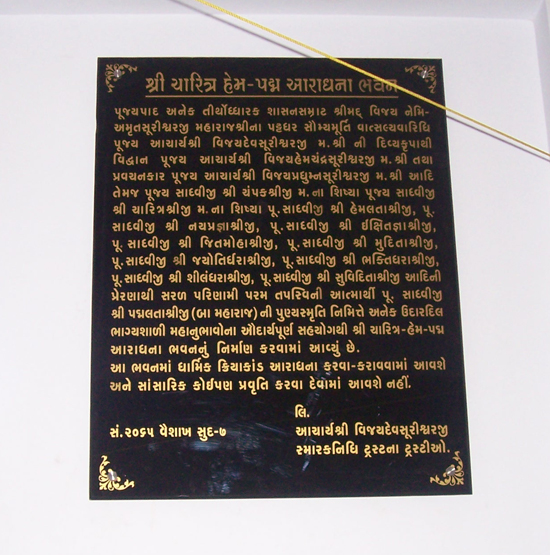 શ્રી ચારિત્ર હેમ-પદ્મ આરાધના ભવન
પૂજ્યપાદ અનેક તીર્થોધ્ધારક શાસનસમ્રાટ શ્રીમદ્ વિજય નેમિ-
અમૃતસૂરીશ્વરજી મહારાજશ્રીના પટ્ટધર સૌમ્યમૂર્તિ વાત્સલ્યવારિધિ
પૂજ્ય આચાર્યશ્રી વિજયદેવસૂરીશ્વરજી મ.શ્રી ની દિવ્યકૃપાથી
વિદ્વાન પૂજ્ય આચાર્યશ્રી વિજયહેમચંદ્રસૂરીશ્વરજી મ.શ્રી તથા
પ્રવચનકાર પૂજ્ય આચાર્યશ્રી વિજયપ્રધુમ્નસૂરીશ્વરજી મ.શ્રી આદિ
તેમજ પૂજ્ય સાધ્વીજી શ્રી ચંપકશ્રીજી મ.ના શિષ્યા પૂજ્ય સાધ્વીજી
શ્રી ચારિત્રશ્રીજી મ.ના શિષ્યા પૂ.સાધ્વીજી શ્રી હેમલતાશ્રીજી, પૂ.
સાધ્વીજી શ્રી નયપ્રજ્ઞાશ્રીજી, પૂ.સાધ્વીજી શ્રી ઈક્ષિતજ્ઞાશ્રીજી,
પૂ.સાધ્વીજી શ્રી જિતમોહાશ્રીજી, પૂ.સાધ્વીજી શ્રી મુદિતાશ્રીજી,
પૂ.સાધ્વીજી શ્રી જ્યોતિર્ધરાશ્રીજી, પૂ.સાધ્વીજી શ્રી ભક્તિધરાશ્રીજી,
પૂ.સાધ્વીજી શ્રી શીલંધરાશ્રીજી, પૂ.સાધ્વીજી શ્રી સુવિદિતાશ્રીજી આદિની
પ્રેરણાથી સરળ પરિણામી પરમ તપસ્વિની આત્માર્થી પૂ. સાધ્વીજી
શ્રી પદ્મલતાશ્રીજી (બા મહારાજ) ની પુણ્યસ્મૃતિ નિમિત્તે અનેક ઉદારદિલ
ભાગ્યશાળી મહાનુભાવોના ઔદાર્યપૂર્ણ સહયોગથી શ્રી ચારિત્ર-હેમ-પદ્મ
આરાધના ભવનનું નિર્માણ કરવામાં આવ્યું છે.
આ ભવનમાં ધાર્મિક ક્રિયાકાંડ આરાધના કરવા-કરાવવામાં આવશે
અને સાંસારિક કોઈપણ પ્રવૃતિ કરવા દેવામાં આવશે નહીં.
લિ.
સં.૨૦૬૫ વૈશાખ સુદ-૭
આચાર્યશ્રી વિજયદેવસૂરીશ્વરજી
સ્મારકનિધિ ટ્રસ્ટના ટ્રસ્ટીઓ.